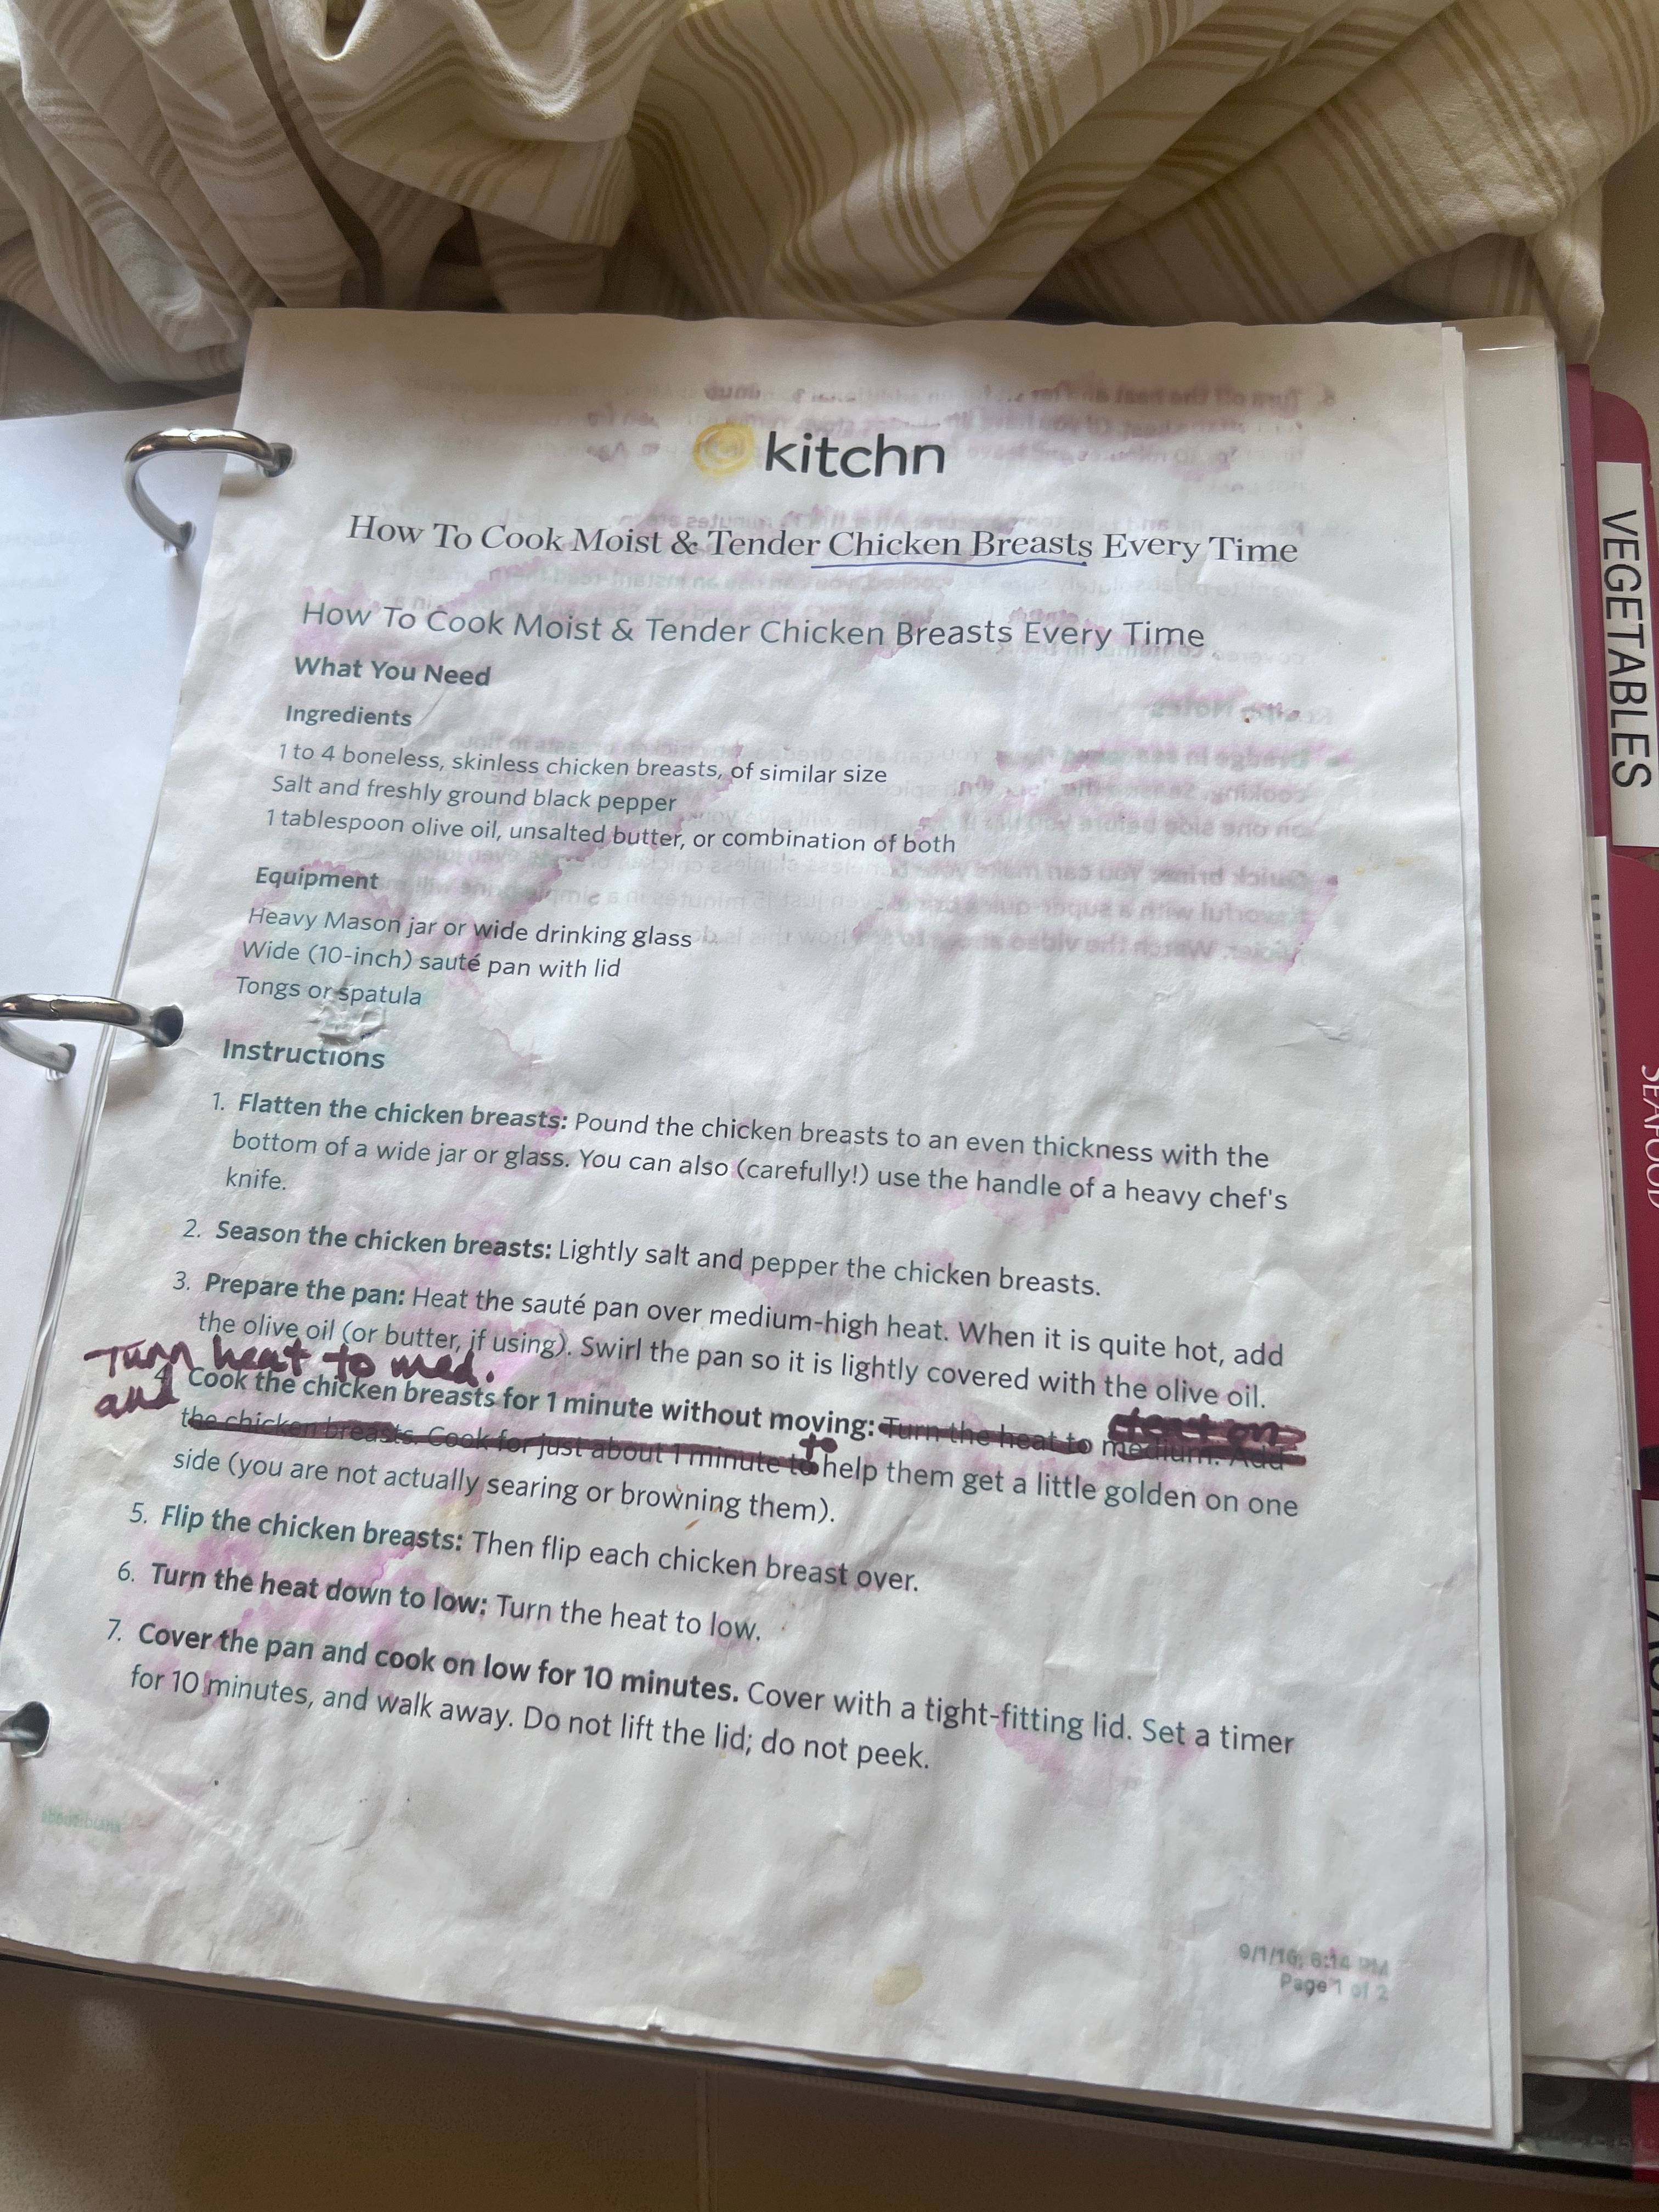 kitchn
How To Cook Moist & Tender Chicken Breasts Every Time
How To Cook Moist & Tender Chicken Breasts Every Time
What You Need
Ingredients
1 to 4 boneless, skinless chicken breasts, of similar size
Salt and freshly ground black pepper
1 tablespoon olive oil, unsalted butter, or combination of both
Equipment
Heavy Mason jar or wide drinking glass
Wide (10-inch) sauté pan with lid
Tongs or spatula
Instructions
1. Flatten the chicken breasts: Pound the chicken breasts to an even thickness with the
bottom of a wide jar or glass. You can also (carefully!) use the handle of a heavy chef's
knife.
2. Season the chicken breasts: Lightly salt and pepper the chicken breasts.
3. Prepare the pan: Heat the sauté pan over medium-high heat. When it is quite hot, add
the olive oil (or butter, if using). Swirl the pan so it is lightly covered with the olive oil.
Turn heat to med.
and
4. Cook the chicken breasts for 1 minute without moving: Turn the heat to medium. Add
to
the chicken breasts. Cook for just about 1 minute to help them get a little golden on one
side (you are not actually searing or browning them).
5. Flip the chicken breasts: Then flip each chicken breast over.
6. Turn the heat down to low: Turn the heat to low.
7. Cover the pan and cook on low for 10 minutes. Cover with a tight-fitting lid. Set a timer
for 10 minutes, and walk away. Do not lift the lid; do not peek.
9/1/16, 6:14 PM
Page 1 of 2
VEGETABLES
SEAFOOD